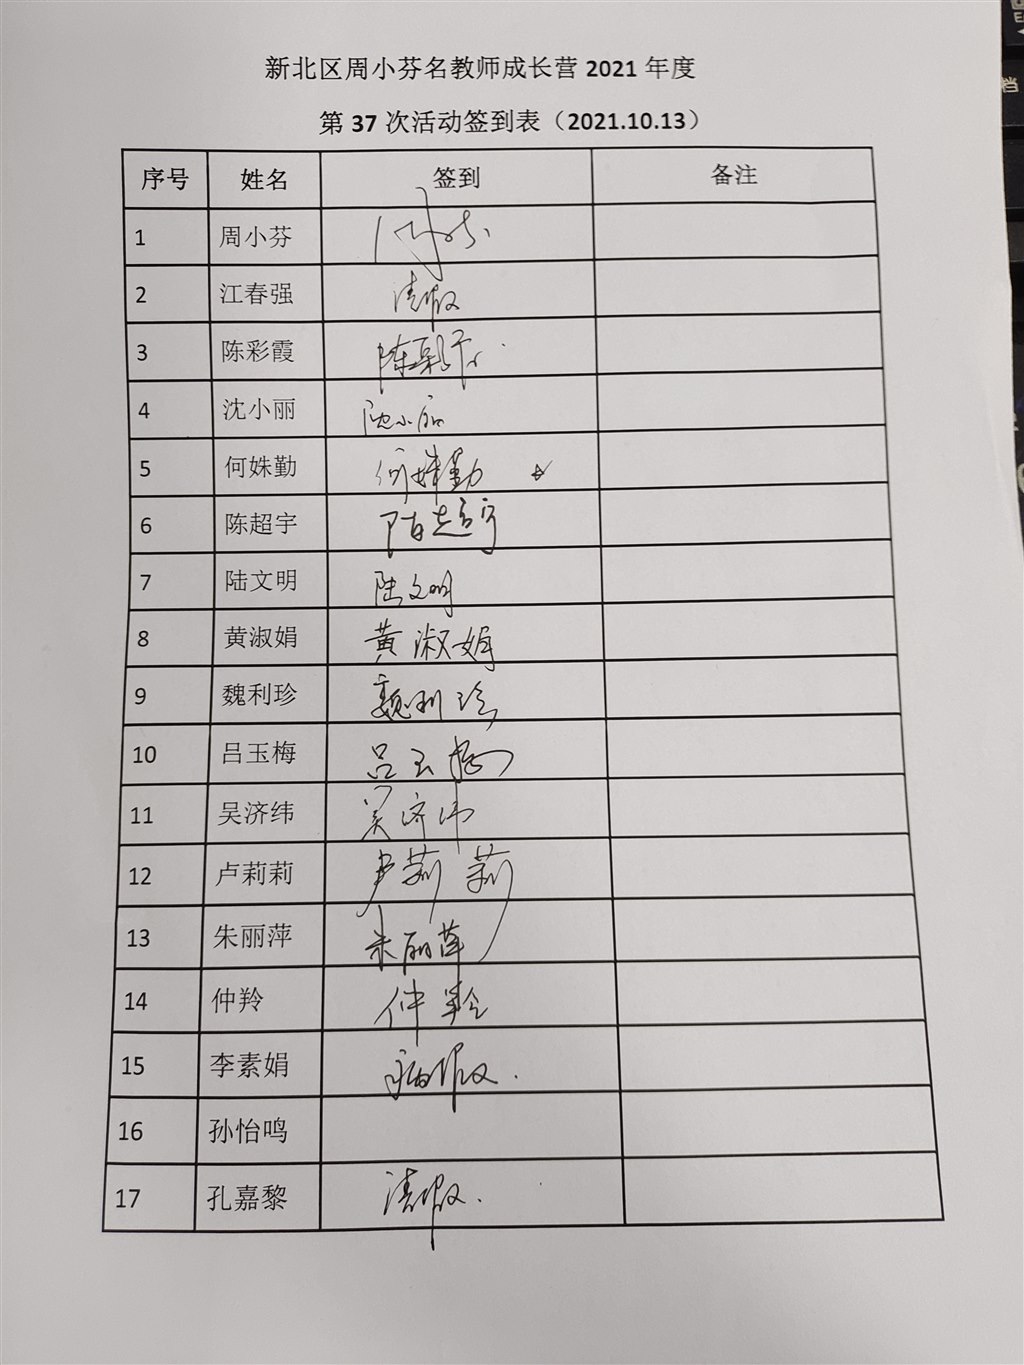 新北区周小芬名教师成长营 2021 年度
第 37 次活动签到表（2021.10.13）
序号 姓名 签到 备注
1 周小芬
2 江春强 请假
3 陈彩霞 陈彩霞
4 沈小丽 沈小丽
5 何姝勤 何姝勤
6 陈超宇 陈超宇
7 陆文明 陆文明
8 黄淑娟 黄淑娟
9 魏利珍 魏利珍
10 吕玉梅 吕玉梅
11 吴济纬 吴济纬
12 卢莉莉 卢莉莉
13 朱丽萍 朱丽萍
14 仲羚 仲羚
15 李素娟 病假
16 孙怡鸣
17 孔嘉黎 请假